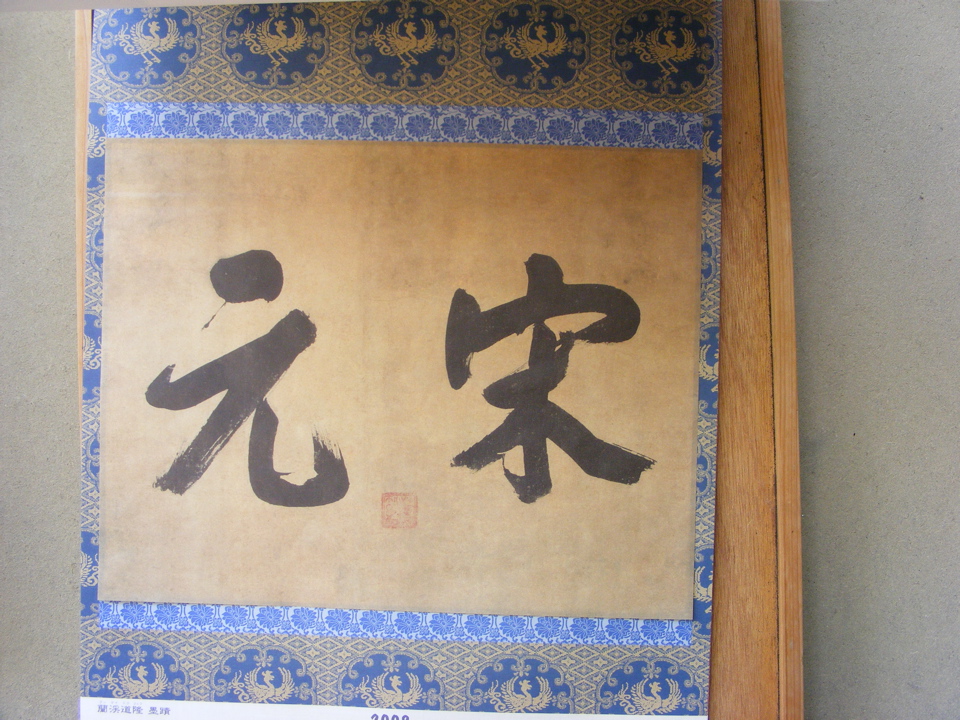 宋元
蘭渓道隆 墨蹟